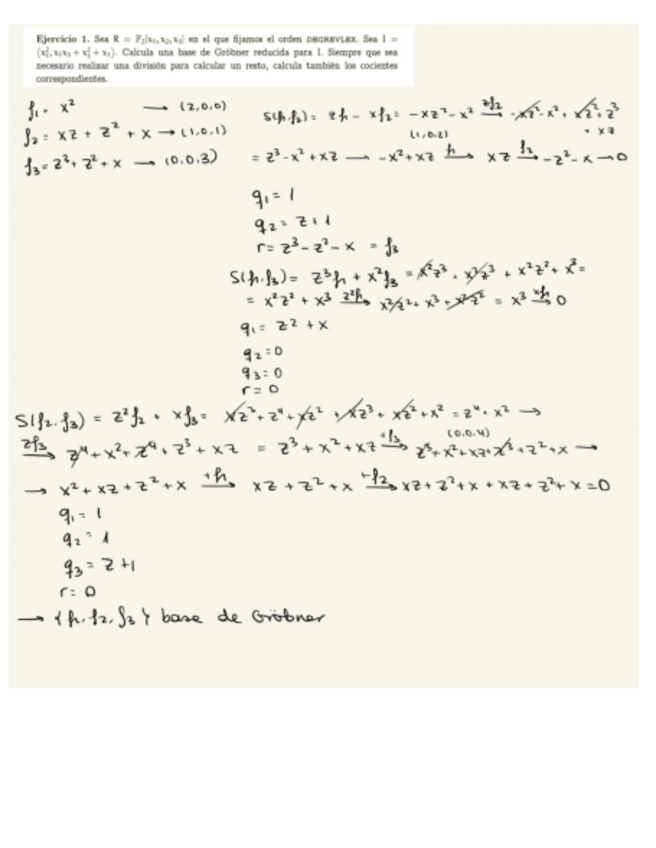 Ejercicio 1. Sea R = F₂[x₁, x₂, x₃] en el que fijamos el orden DEGREVLEX. Sea I =
⟨x₁², x₁x₃ + x₃² + x₁⟩. Calcula una base de Gröbner reducida para I. Siempre que sea
necesario realizar una división para calcular un resto, calcula también los cocientes
correspondientes.
f₁ = x² → (2,0,0)
f₂ = xz + z² + x → (1,0,1)
f₃ = z³ + z² + x → (0,0,3)
S(f₁,f₂) = zf₁ - xf₂ = -xz² - x² →zf₂ -xz² - x² + xz² + z³
+ xz
(1,0,2)
= z³ - x² + xz → -x² + xz →f₁ xz →f₂ -z² - x → 0
q₁ = 1
q₂ = z + 1
r = z³ - z² - x = f₃
S(f₁,f₃) = z³f₁ + x²f₃ = x²z³ + x²z³ + x²z² + x³ =
= x²z² + x³ →z²f₁ x²z² + x³ + x²z² = x³ →xf₁ 0
q₁ = z² + x
q₂ = 0
q₃ = 0
r = 0
S(f₂,f₃) = z²f₂ + xf₃ = xz³ + z⁴ + xz² + xz³ + xz² + x² = z⁴ + x² →
→zf₃ z⁴ + x² + z⁴ + z³ + xz = z³ + x² + xz →+f₃ z³ + x² + xz + z³ + z² + x →
(0,0,4)
→ x² + xz + z² + x →+f₁ xz + z² + x →+f₂ xz + z² + x + xz + z² + x = 0
q₁ = 1
q₂ = 1
q₃ = z + 1
r = 0
→ {f₁, f₂, f₃} base de Gröbner